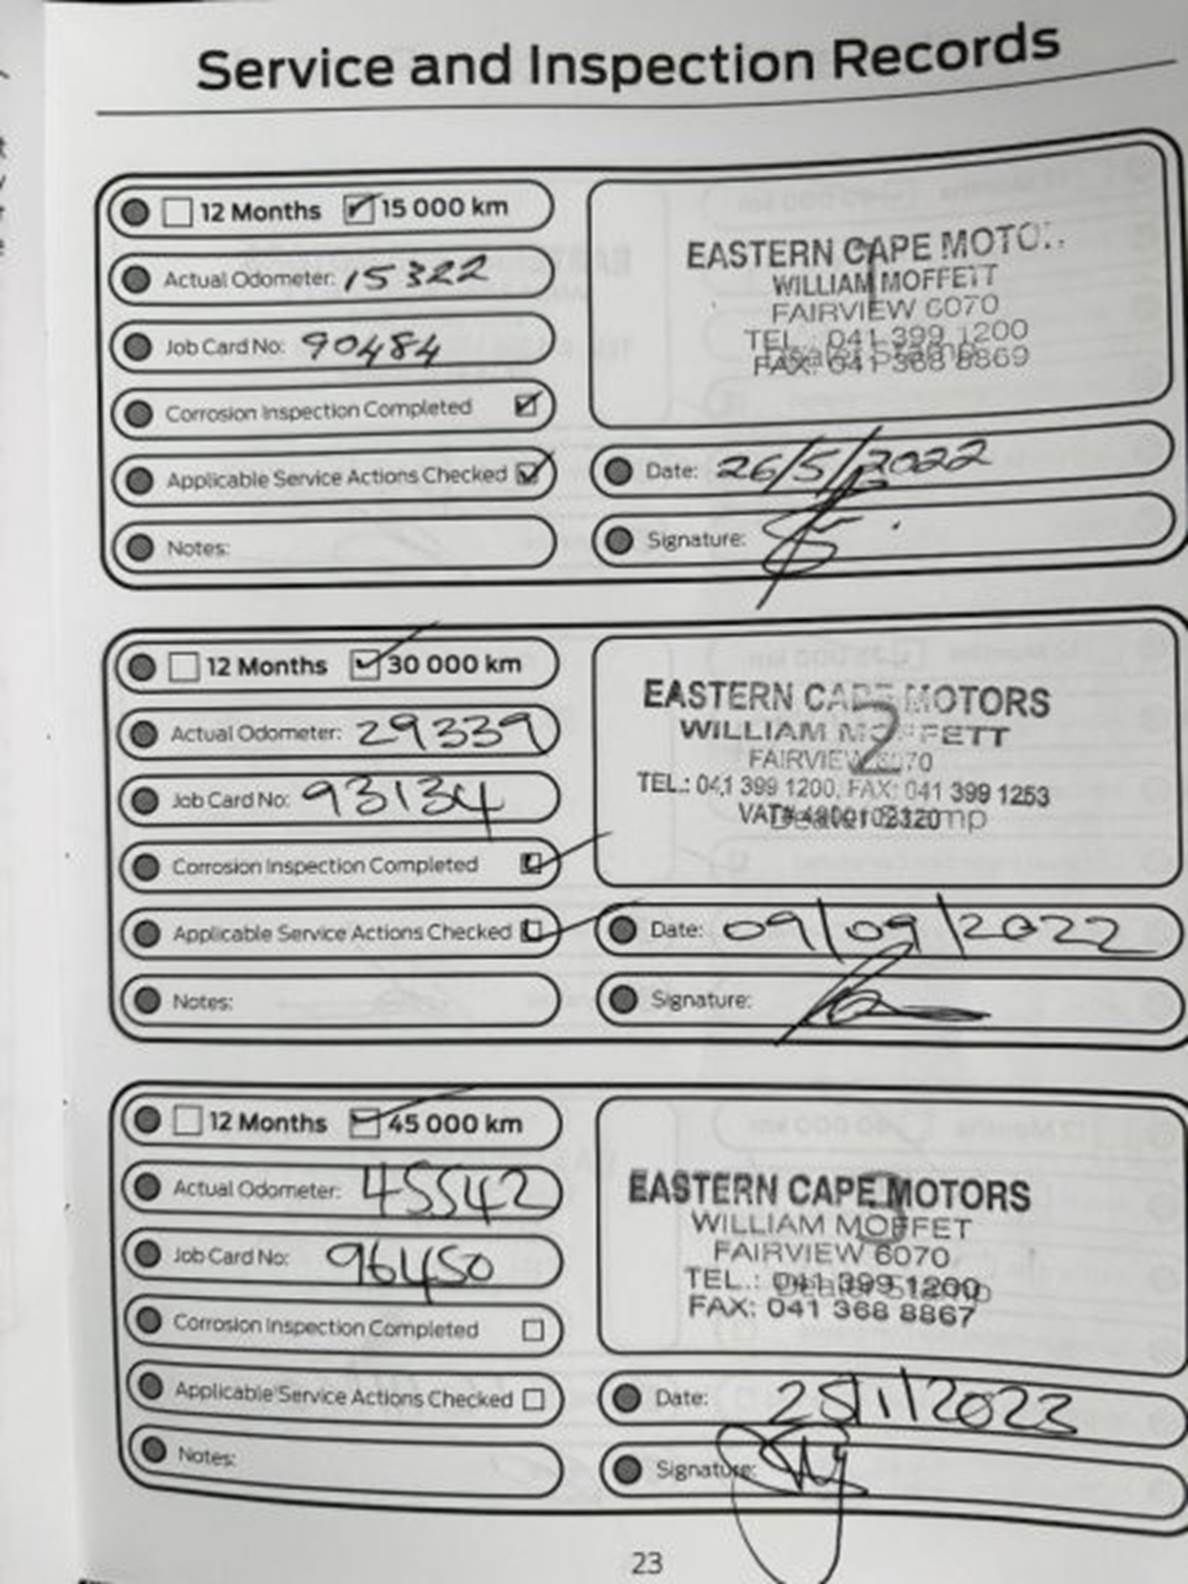 Service and Inspection Records
12 Months 15 000 km
Actual Odometer: 15322
Job Card No: 90484
Corrosion Inspection Completed
Applicable Service Actions Checked
Notes:
1
EASTERN CAPE MOTO
WILLIAM MOFFETT
FAIRVIEW 6070
TEL.: 041 399 1200
FAX: 041 368 8869
Dealer Stamp
Date: 26/5/2022
Signature:
12 Months 30 000 km
Actual Odometer: 29339
Job Card No: 93134
Corrosion Inspection Completed
Applicable Service Actions Checked
Notes:
2
EASTERN CAPE MOTORS
WILLIAM MOFFETT
FAIRVIEW 6070
TEL.: 041 399 1200, FAX: 041 399 1253
Dealer Stamp
Date: 09/09/2022
Signature:
12 Months 45 000 km
Actual Odometer: 45542
Job Card No: 96450
Corrosion Inspection Completed
Applicable Service Actions Checked
Notes:
3
EASTERN CAPE MOTORS
WILLIAM MOFFET
FAIRVIEW 6070
TEL.: 041 399 1200
FAX: 041 368 8867
Dealer Stamp
Date: 25/1/2023
Signature:
23